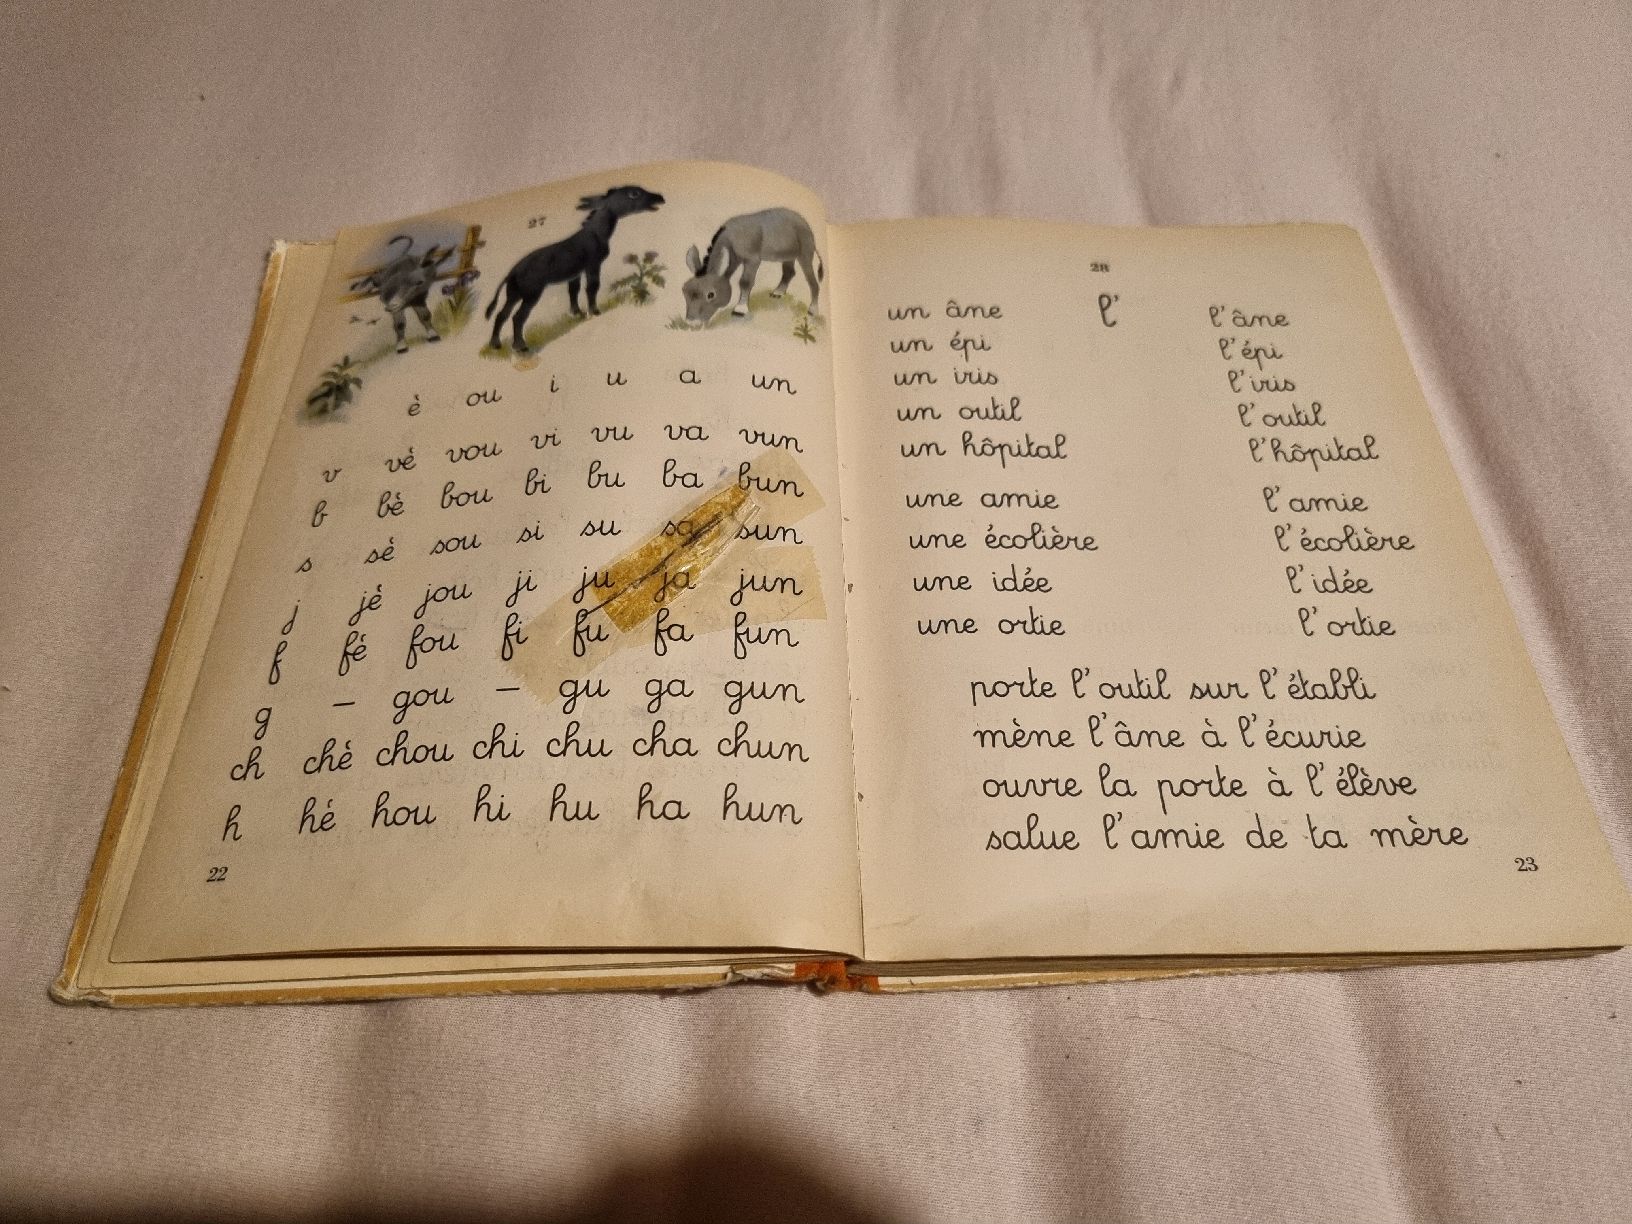 27
è ou i u a un
v vè vou vi vu va vun
b bè bou bi bu ba bun
s sè sou si su sa sun
j jè jou ji ju ja jun
f fè fou fi fu fa fun
g – gou – gu ga gun
ch chè chou chi chu cha chun
h hè hou hi hu ha hun
22
28
un âne l' l'âne
un épi l'épi
un iris l'iris
un outil l'outil
un hôpital l'hôpital
une amie l'amie
une écolière l'écolière
une idée l'idée
une ortie l'ortie
porte l'outil sur l'établi
mène l'âne à l'écurie
ouvre la porte à l'élève
salue l'amie de ta mère
23